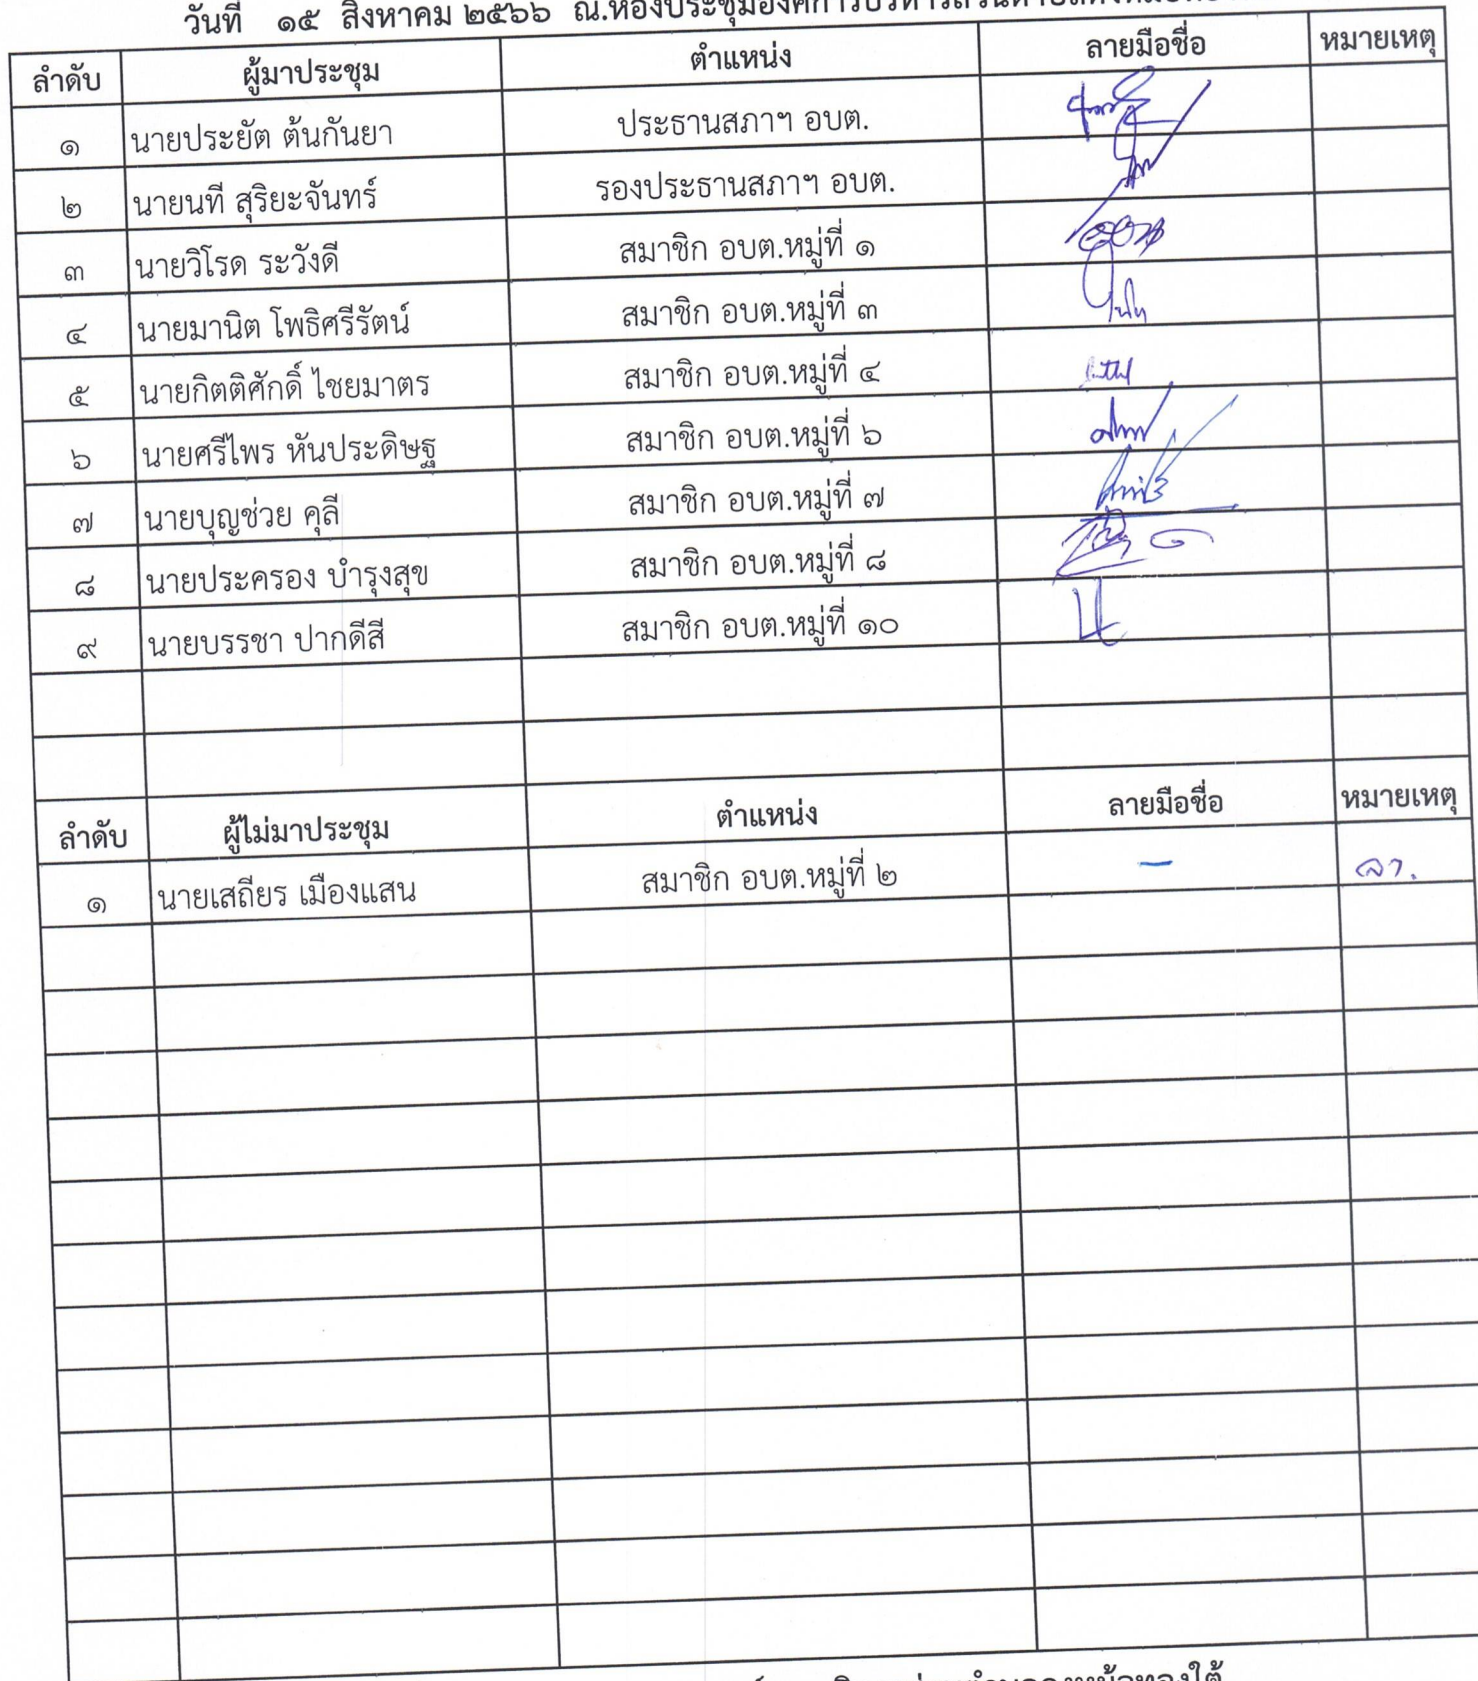 วันที่ ๑๕ สิงหาคม ๒๕๖๖ ณ.ห้องประชุมองค์การบริหารส่วนตำบล
ลำดับ ผู้มาประชุม ตำแหน่ง ลายมือชื่อ หมายเหตุ
๑ นายประยัต ต้นกันยา ประธานสภาฯ อบต.
๒ นายนที สุริยะจันทร์ รองประธานสภาฯ อบต.
๓ นายวิโรด ระวังดี สมาชิก อบต.หมู่ที่ ๑
๔ นายมานิต โพธิศรีรัตน์ สมาชิก อบต.หมู่ที่ ๓
๕ นายกิตติศักดิ์ ไชยมาตร สมาชิก อบต.หมู่ที่ ๔
๖ นายศรีไพร หันประดิษฐ สมาชิก อบต.หมู่ที่ ๖
๗ นายบุญช่วย คุลี สมาชิก อบต.หมู่ที่ ๗
๘ นายประครอง บำรุงสุข สมาชิก อบต.หมู่ที่ ๘
๙ นายบรรชา ปากดีสี สมาชิก อบต.หมู่ที่ ๑๐
ลำดับ ผู้ไม่มาประชุม ตำแหน่ง ลายมือชื่อ หมายเหตุ
๑ นายเสถียร เมืองแสน สมาชิก อบต.หมู่ที่ ๒ – ลา.